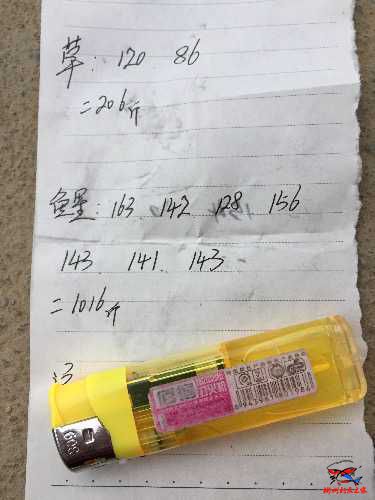 草: 120 86
=206斤
鲢: 163. 142 128 156
143. 141. 143.
=1016斤